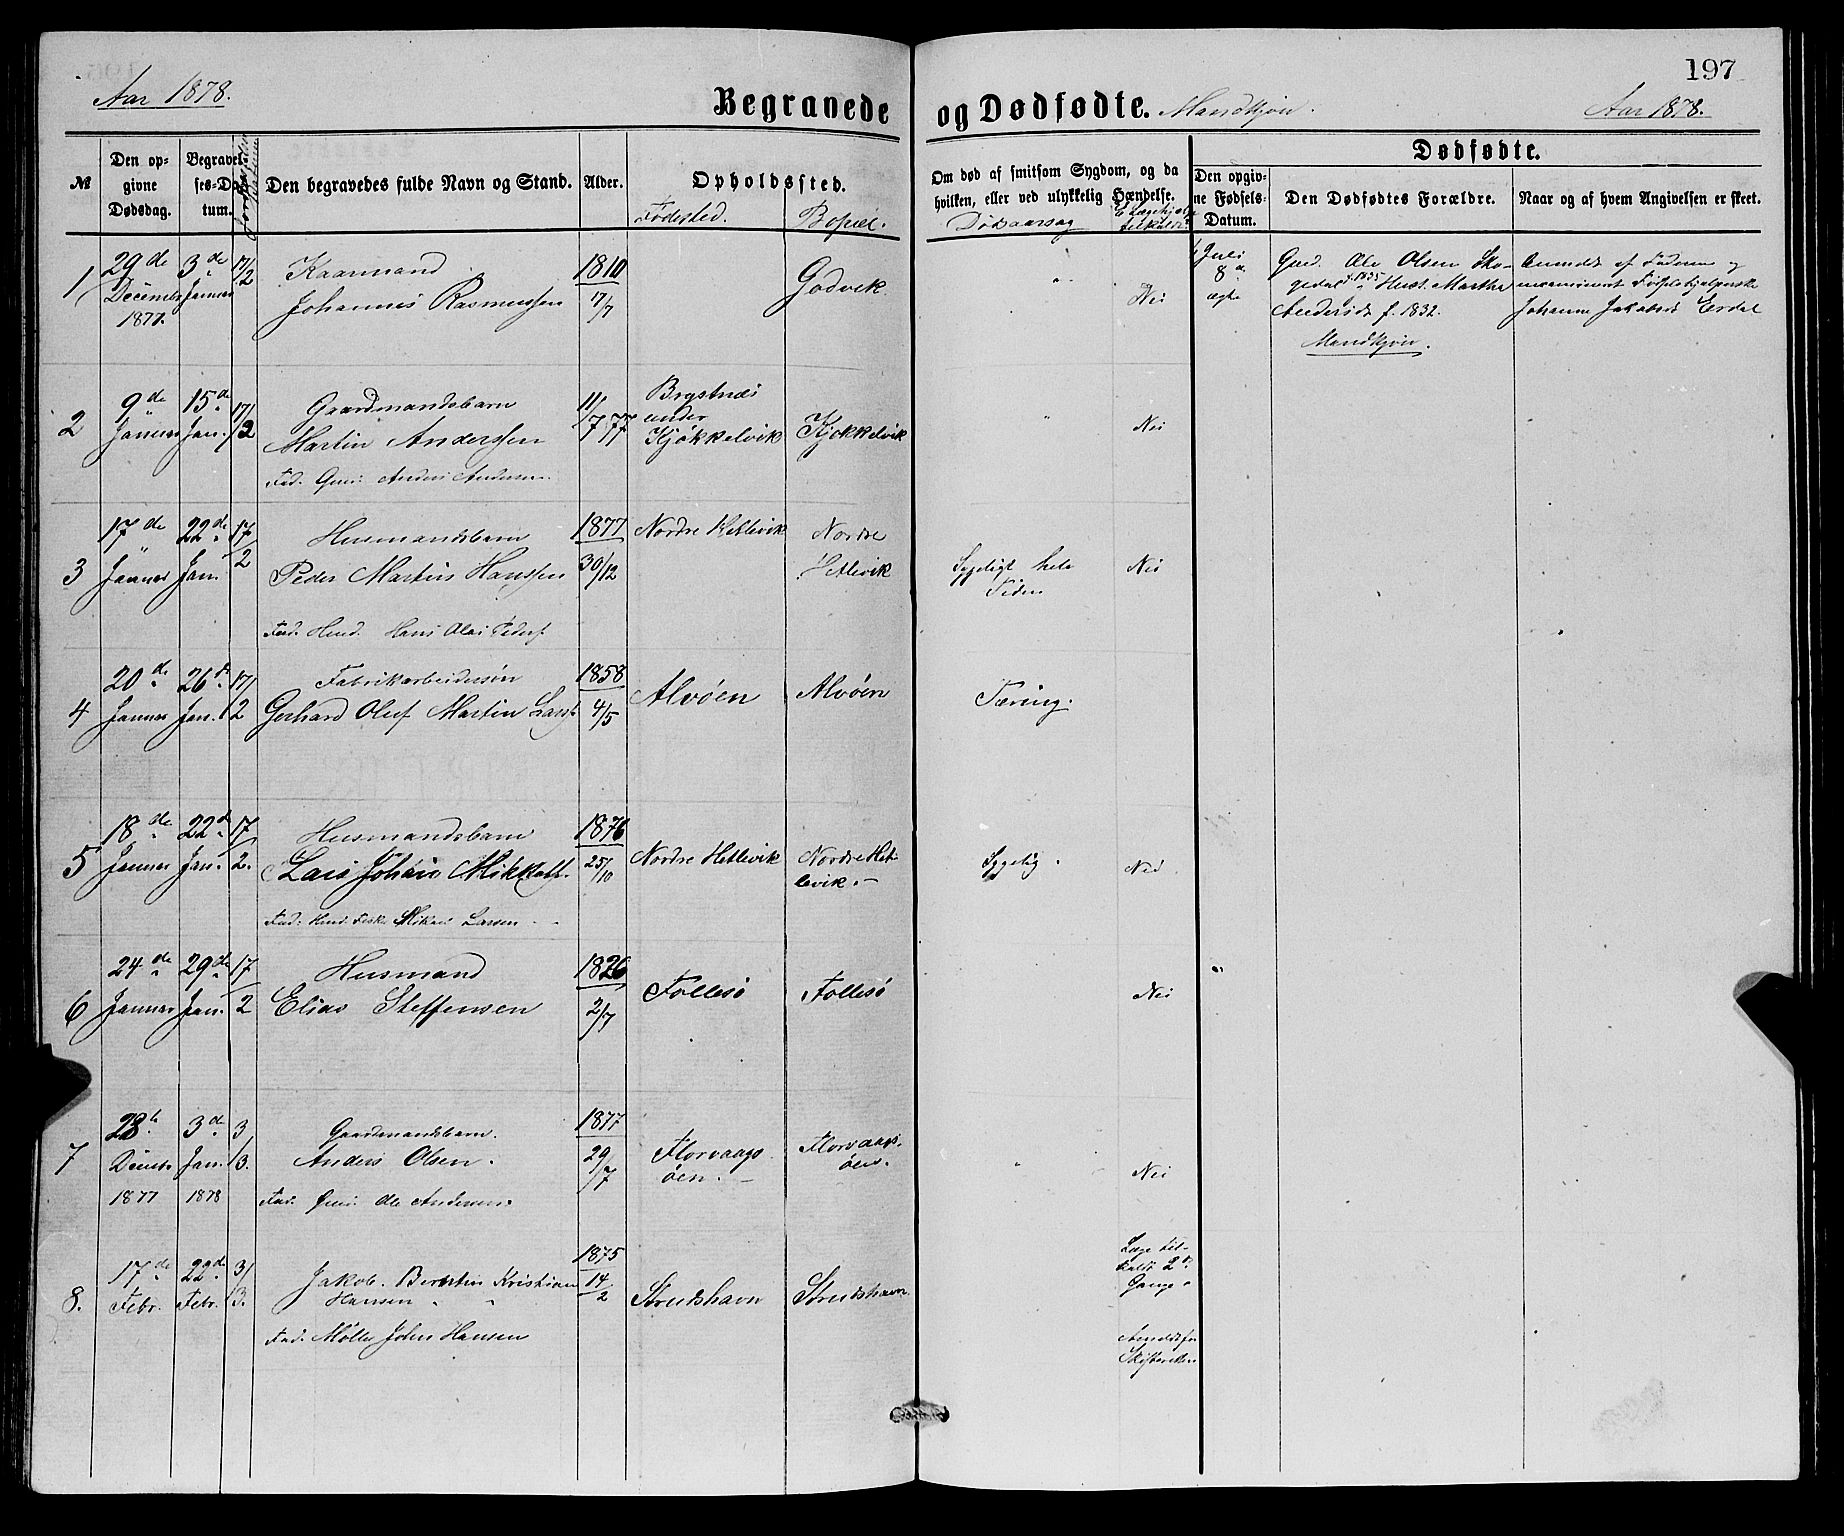 197
Aar 1878.
Begravede og Dødfødte. Mandkjøn.
Aar 1878.
№
Den opgivne Dødsdag.
Begravelses-Datum.
Den begravedes fulde Navn og Stand.
Alder.
Opholdssted.
Fødested. Bopæl.
Om død af smitsom Sygdom, og da
hvilken, eller ved ulykkelig Hændelse.
Dødsaarsag
Dødfødte.
Den opgivne Fødsels-Datum.
Den Dødfødtes Forældre.
Naar og af hvem Angivelsen er skeet.
1 29de December 1877. 3de Januar 17/2
Kaarmand
Johannes Rasmussen
1810 17/7
Godvik
" Nei
Juli 8de ægte
Gmd. Ole Olsen
f. 1835 Hust. Martha
Andersdr f. 1832.
Mandkjøn.
Anmeldt af Faderen og
Johanne Jakobsdr Erdal
2 9de Januar 15de Jan. 17/2
Gaardmandsbarn
Martin Anderssen
Fad. Gmd. Anders Andersen
11/7 77
Brystnæs under Kjøkkelvik
Kjøkkelvik
" Nei
3 17de Januar 22de Jan. 17/2
Husmandsbarn
Peder Martin Hanssen
Fad. Hmd. Hans Olai Peders.
1877 30/12
Nordre Hetlevik
Nordre Hetlevik
Sygeligt hele Tiden
Nei
4 20de Januar 26de Jan. 17/2
Fabrikarbeidersøn
Gerhard Oluf Martin Larss.
1858 4/5
Alvøen
Alvøen
Tæring.
5 18de Januar 22de Jan. 17/2.
Husmandsbarn
Lars Johan Mikkels.
Larsen
1876 25/10
Nordre Hetlevik
Nordre Hetlevik.
Sygelig.
Nei
6 24de Januar 29de Jan. 17/2
Husmand
Elias Steffensen
1826 2/7
Follesø
Follesø
Nei
7 28de Decmbr 1877 3de Jan. 1878 3/3.
Gaardmandsbarn.
Anders Olsen.
Fad. Gmd. Ole Andersen.
1877 29/7
Florvaagsøen.
Florvaagsøen.
" Nei
8. 17de Febr. 22de Febr. 3/3.
Jakob Berntin Kristian
Hansen
Fad. Møller John Hansen
1875 14/2
Strudshavn
Strudshavn
Læge tilkaldt 2de Gange
Anmeldt for Skifteretten